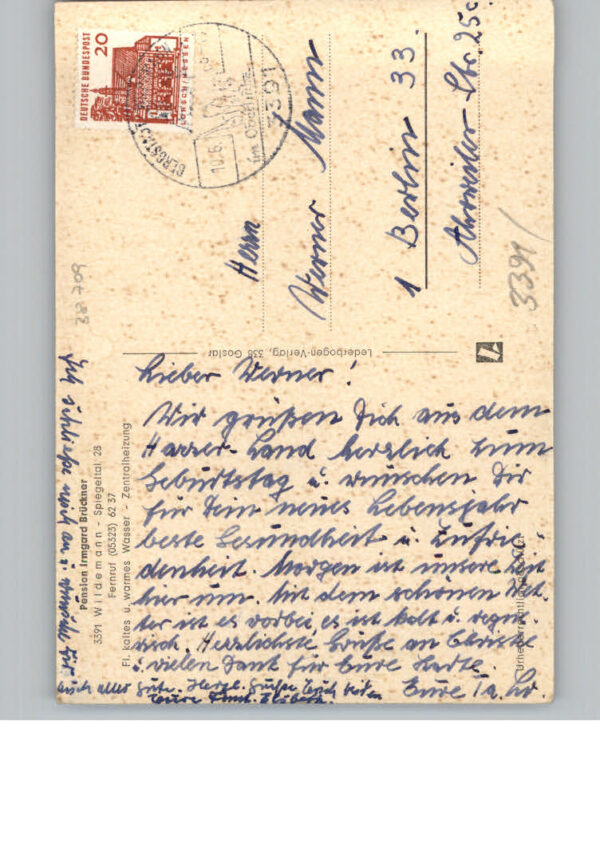 DEUTSCHE BUNDESPOST
20
LORSCH/HESSEN
BERGSTADT
10.6.
im Oberharz
3391
Herrn
Werner Mann
1 Berlin 33.
Ahrweiler Str. 25c
3391/
Lederbogen-Verlag, 338 Goslar
Pension Irmgard Brückner
3391 Wildemann - Spiegeltal 28
Fernruf (05323) 62 37
Fl. kaltes u. warmes Wasser - Zentralheizung
Lieber Werner!
Wir grüßen Dich aus dem
Harzer-Land herzlich zum
Geburtstag u. wünschen Dir
für Dein neues Lebensjahr
beste Gesundheit u. Zufrie-
denheit. Morgen ist unsere Zeit
hier um. Mit dem schönen Wet-
ter ist es vorbei es ist kalt u. regne-
risch. Herzlichste Grüße an
u. vielen Dank für Eure Karte.
Eure
Ich schließe mich an u. wünsche Dir
auch alles Gute. Herzl. Grüße Euch beiden
Eure